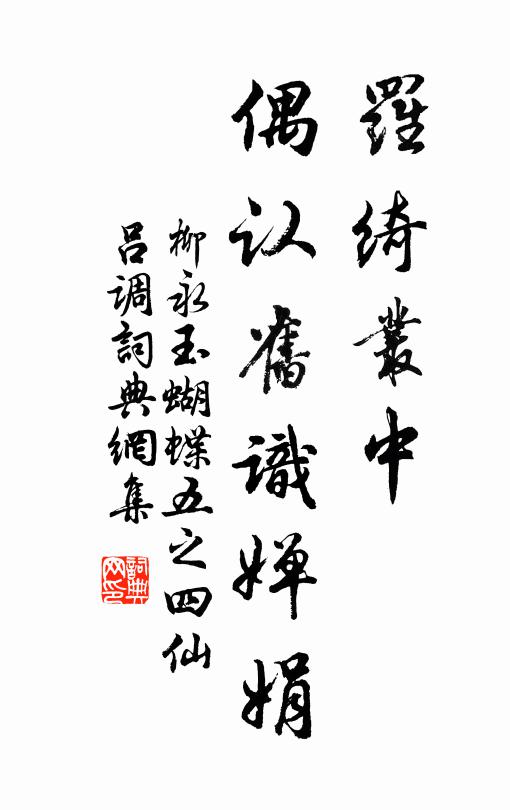 羅綺叢中
偶认舊識嬋娟
柳永玉蝴蝶五之四仙
吕调詞典網集
詞典
网印